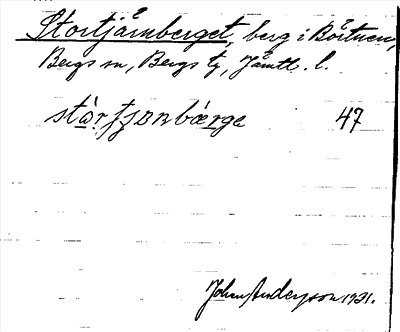 Stortjärnberget, berg i Börtnen,
Bergs sn, Bergs tg, Jämtl. l.
stàr.ţjɒnbǽrge 47
Johan Anderson 1931.